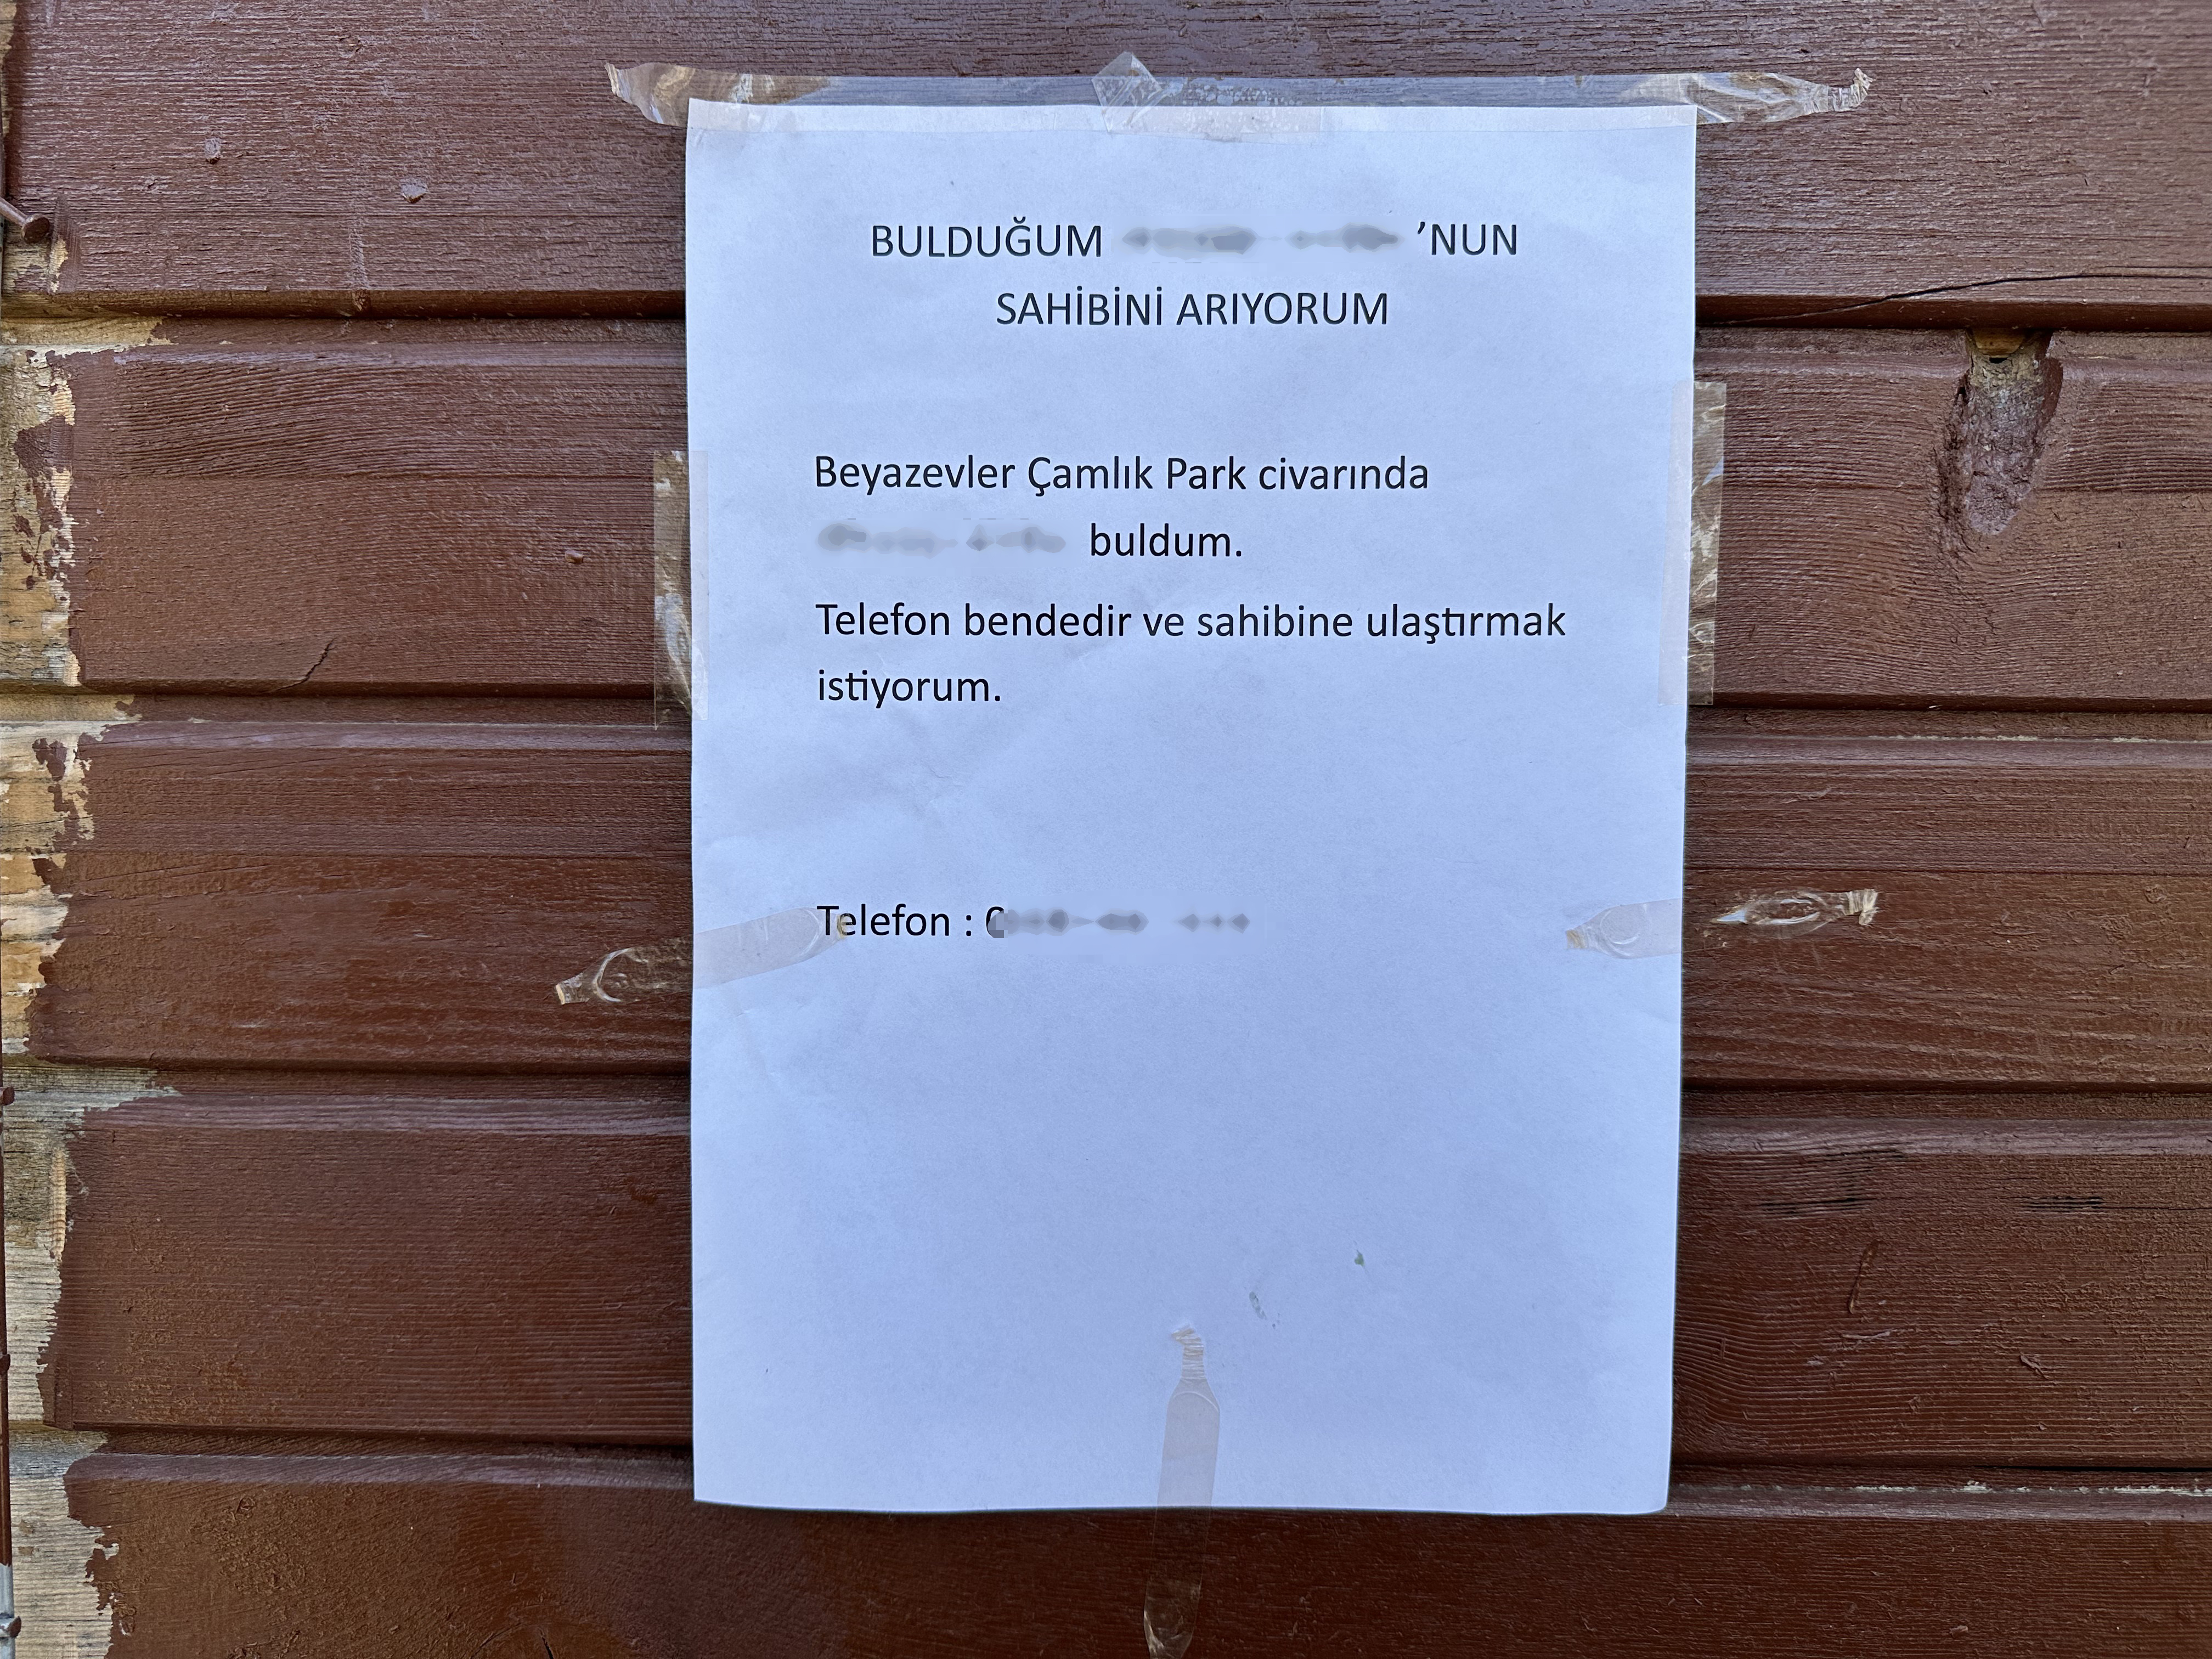 BULDUĞUM 'NUN
SAHİBİNİ ARIYORUM
Beyazevler Çamlık Park civarında
buldum.
Telefon bendedir ve sahibine ulaştırmak
istiyorum.
Telefon :